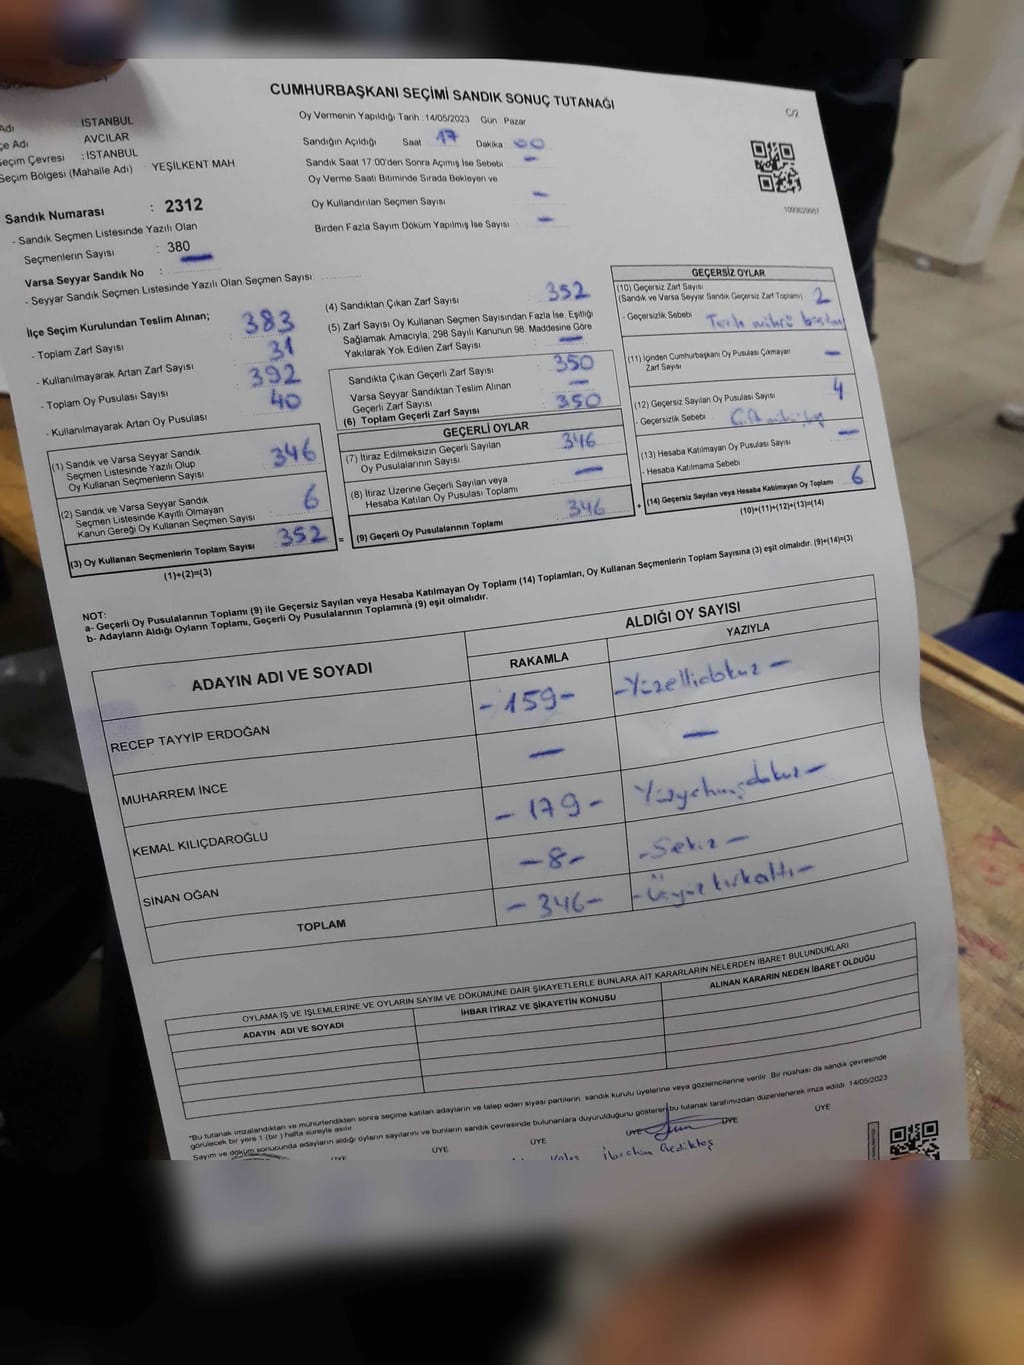 CUMHURBAŞKANI SEÇİMİ SANDIK SONUÇ TUTANAĞI
C/2
Adı İSTANBUL
çe Adı AVCILAR
Seçim Çevresi : İSTANBUL
Seçim Bölgesi (Mahalle Adı) YEŞİLKENT MAH
Oy Vermenin Yapıldığı Tarih :14/05/2023 Gün : Pazar
Sandığın Açıldığı Saat 17 Dakika 00
Sandık Saat 17.00'den Sonra Açımış İse Sebebi —
Oy Verme Saati Bitiminde Sırada Bekleyen ve
Oy Kullandırılan Seçmen Sayısı —
Birden Fazla Sayım Döküm Yapılmış İse Sayısı —
1093629957
Sandık Numarası : 2312
- Sandık Seçmen Listesinde Yazılı Olan
Seçmenlerin Sayısı : 380
Varsa Seyyar Sandık No : —
- Seyyar Sandık Seçmen Listesinde Yazılı Olan Seçmen Sayısı:
İlçe Seçim Kurulundan Teslim Alınan;
- Toplam Zarf Sayısı 383
- Kullanılmayarak Artan Zarf Sayısı 31
- Toplam Oy Pusulası Sayısı 392
- Kullanılmayarak Artan Oy Pusulası 40
(1) Sandık ve Varsa Seyyar Sandık
Seçmen Listesinde Yazılı Olup
Oy Kullanan Seçmenlerin Sayısı 346
(2) Sandık ve Varsa Seyyar Sandık
Seçmen Listesinde Kayıtlı Olmayan
Kanun Gereği Oy Kullanan Seçmen Sayısı 6
(3) Oy Kullanan Seçmenlerin Toplam Sayısı 352
(1)+(2)=(3)
(4) Sandıktan Çıkan Zarf Sayısı 352
(5) Zarf Sayısı Oy Kullanan Seçmen Sayısından Fazla İse, Eşitliği
Sağlamak Amacıyla, 298 Sayılı Kanunun 98. Maddesine Göre
Yakılarak Yok Edilen Zarf Sayısı —
Sandıkta Çıkan Geçerli Zarf Sayısı 350
Varsa Seyyar Sandıktan Teslim Alınan
Geçerli Zarf Sayısı —
(6) Toplam Geçerli Zarf Sayısı 350
GEÇERLİ OYLAR
(7) İtiraz Edilmeksizin Geçerli Sayılan
Oy Pusulalarının Sayısı 346
(8) İtiraz Üzerine Geçerli Sayılan veya
Hesaba Katılan Oy Pusulası Toplamı —
= (9) Geçerli Oy Pusulalarının Toplamı 346
GEÇERSİZ OYLAR
(10) Geçersiz Zarf Sayısı
(Sandık ve Varsa Seyyar Sandık Geçersiz Zarf Toplamı) 2
- Geçersizlik Sebebi :
(11) İçinden Cumhurbaşkanı Oy Pusulası Çıkmayan
Zarf Sayısı —
(12) Geçersiz Sayılan Oy Pusulası Sayısı 4
- Geçersizlik Sebebi :
(13) Hesaba Katılmayan Oy Pusulası Sayısı —
- Hesaba Katılmama Sebebi :
+ (14) Geçersiz Sayılan veya Hesaba Katılmayan Oy Toplamı 6
(10)+(11)+(12)+(13)=(14)
NOT:
a- Geçerli Oy Pusulalarının Toplamı (9) ile Geçersiz Sayılan veya Hesaba Katılmayan Oy Toplamı (14) Toplamları, Oy Kullanan Seçmenlerin Toplam Sayısına (3) eşit olmalıdır. (9)+(14)=(3)
b- Adayların Aldığı Oyların Toplamı, Geçerli Oy Pusulalarının Toplamına (9) eşit olmalıdır.
ADAYIN ADI VE SOYADI
ALDIĞI OY SAYISI
RAKAMLA YAZIYLA
RECEP TAYYİP ERDOĞAN - 159 - - Yüzellidokuz -
MUHARREM İNCE — —
KEMAL KILIÇDAROĞLU - 179 - Yüzyetmişdokuz -
SİNAN OĞAN - 8 - - Sekiz -
TOPLAM - 346 - - Üçyüzkırkaltı -
OYLAMA İŞ VE İŞLEMLERİNE VE OYLARIN SAYIM VE DÖKÜMÜNE DAİR ŞİKAYETLERLE BUNLARA AİT KARARLARIN NELERDEN İBARET BULUNDUKLARI
ADAYIN ADI VE SOYADI İHBAR İTİRAZ VE ŞİKAYETİN KONUSU ALINAN KARARIN NEDEN İBARET OLDUĞU
*Bu tutanak imzalandıktan ve mühürlendikten sonra seçime katılan adayların ve talep eden siyasi partilerin sandık kurulu üyelerine veya gözlemcilerine verilir. Bir nüshası da sandık çevresinde
görülecek bir yere 1 (bir) hafta süreyle asılır.
Sayım ve döküm sonucunda adayların aldığı oyların sayılarını ve bunların sandık çevresinde bulunanlara duyurulduğunu gösteren bu tutanak tarafımızdan düzenlenerek imza edildi. 14/05/2023
ÜYE ÜYE ÜYE ÜYE ÜYE ÜYE
İbrahim Gediktaş